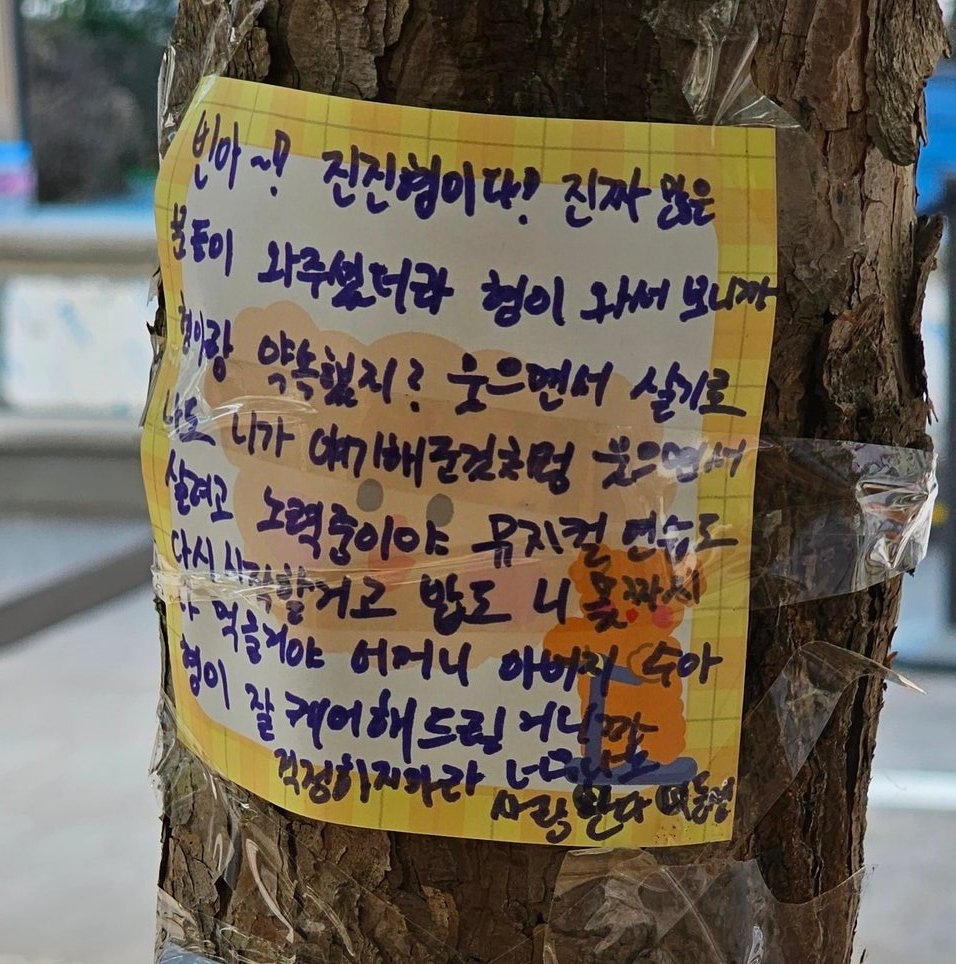 빈아~! 진진형이다! 진짜 많은
분들이 와주셨더라 형이 와서 보니까
형이랑 약속했지? 웃으면서 살기로
나도 니가 얘기해준것처럼 웃으면서
살려고 노력중이야 뮤지컬 연습도
다시 시작할거고 밥도 니 몫까지
다 먹을거야 어머니 아버지 수아
형이 잘 케어해드릴 거니까
걱정하지마라
사랑한다